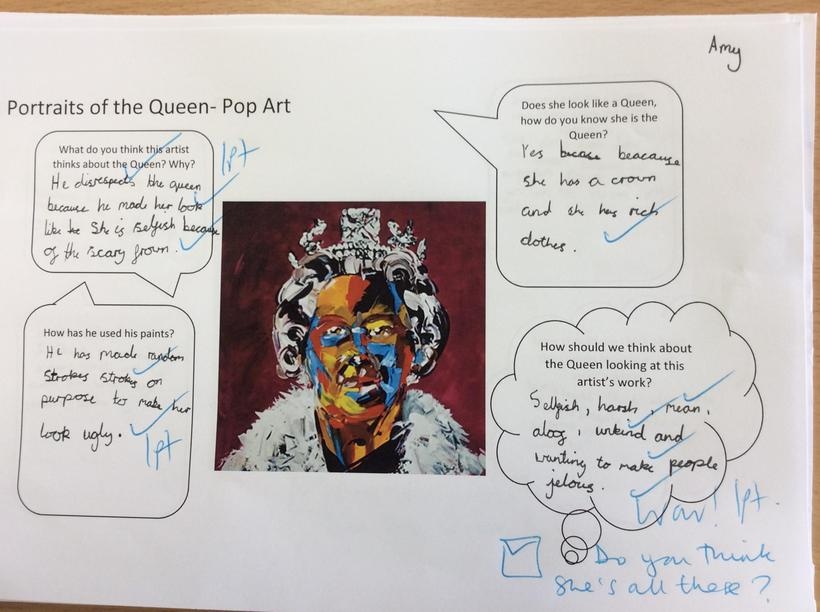 Amy
Portraits of the Queen- Pop Art
What do you think this artist
thinks about the Queen? Why?
1pt
He disrespects the queen
because he made her look
like she is selfish because
of the scary frown.
Does she look like a Queen,
how do you know she is the
Queen?
Yes beacause
she has a crown
and she has rich
clothes.
How has he used his paints?
He has made random
strokes on
purpose to make her
look ugly.
1pt
How should we think about
the Queen looking at this
artist's work?
Selfish, harsh, mean,
unkind and
wanting to make people
jelous.
Wow! 1pt.
Do you think
she's all these?